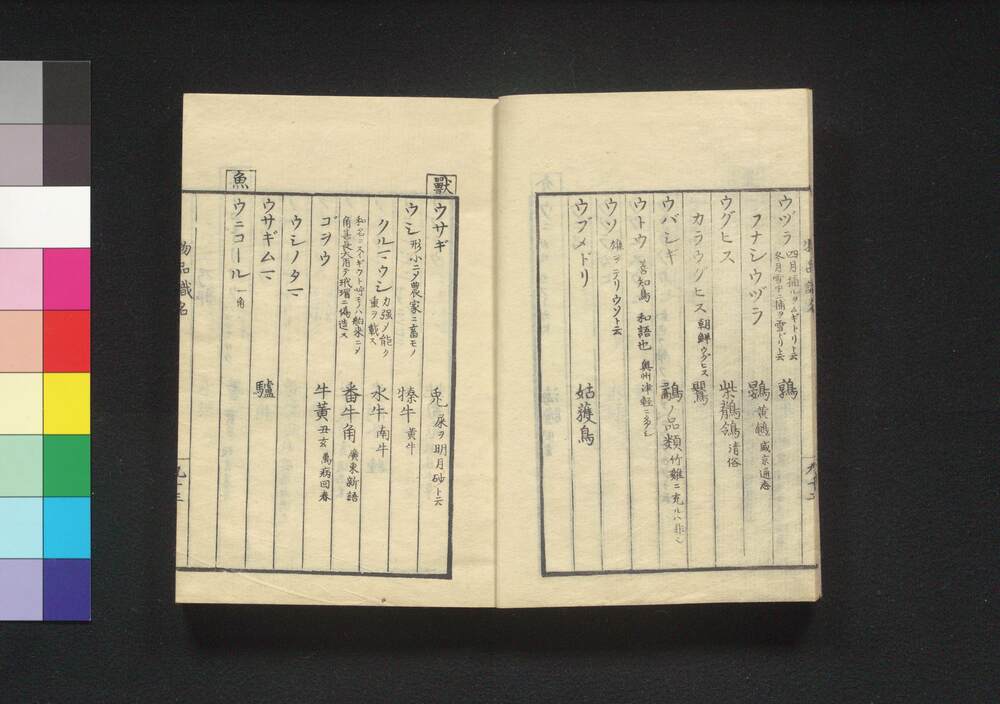 ウヅラ 四月捕ルヲムギドリト云 冬月雪中ニ捕ヲ雪ドリト云 鶉
フナシウヅラ 鷃 黄䳺 盛京通志
ウグヒス 柴鶺鴒 清俗
カラウグヒス 朝鮮ウグヒス 鸎
ウバシギ 鷸ノ品類 竹雞ニ充ルハ非シ
ウトウ 善知鳥 和語也 奥州津軽ニ多シ
ウソ 雄ヲテリウソト云
ウブメドリ 姑獲鳥
獸
ウサギ 兎 屎ヲ明月砂ト云
ウシ 形小ニメ農家ニ畜モノ 㹥牛 黄牛
クルマウシ 力强ノ能ク重ヲ載ス 水牛 南牛
和名ニスイギウト呼モノハ舶来ニメ角甚長大用テ玳瑁ニ偽造ス 番牛角 廣東新語
ゴヲウ 牛黃 丑亥 萬病回春
ウシノタマ
ウサギムマ 驢
魚
ウニコール 一角
物品識名